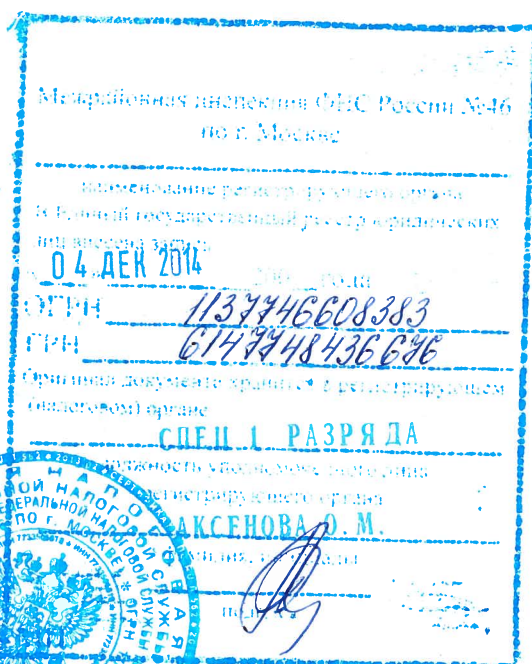 Межрайонная инспекция ФНС России №46
по г. Москве
наименование регистрирующего органа
В Единый государственный реестр юридических
лиц внесена запись
04 ДЕК 2014
года
ОГРН 1137746608383
ГРН 6147748436676
Оригинал документа хранится в регистрирующем
(налоговом) органе
СПЕЦ 1 РАЗРЯДА
должность уполномоченного лица
регистрирующего органа
АКСЕНОВА О. М.
фамилия, инициалы
подпись
НАЛОГОВОЙ СЛУЖБЫ
ПО Г. МОСКВЕ
ОГРН